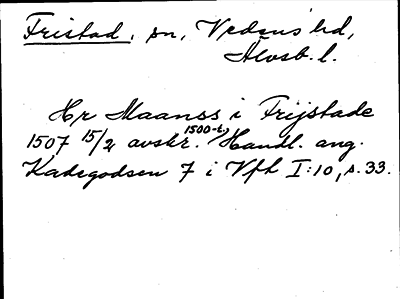 Fristad, sn, Vedens hd,
Älvsb. l.
Hr Maanss i Frijstade
1507 15/2 avskr. 1500-t, Handl. ang.
Kadegodsen 7 i Vfh I:10, s. 33.